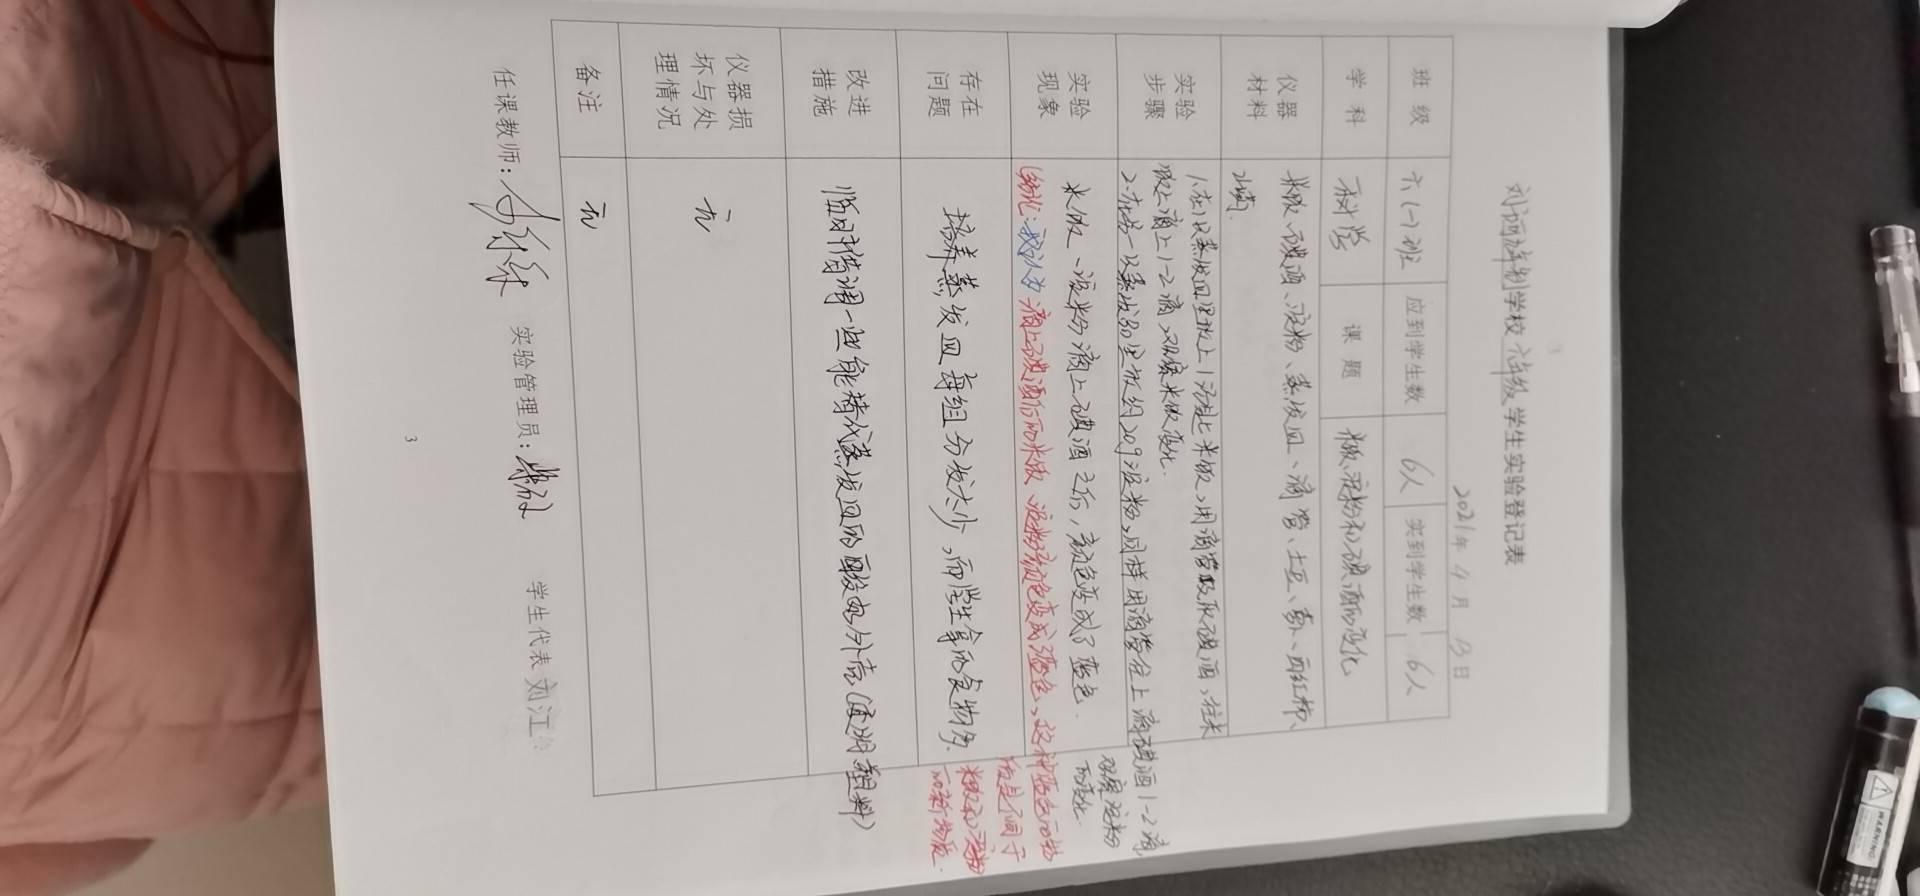 3
刘河libs制学校 六年级 学生实验登记表
2021年 4月 13日
班 级 六(一)班 应到学生数 6人 实到学生数 6人
学 科 科学 课 题 米饭、淀粉和碘酒的变化
仪器材料 米饭、碘酒、淀粉、蒸发皿、滴管、土豆、
实验步骤 1.在 蒸发皿里放上1 米饭,用滴管吸取碘酒,往米
饭上滴上1-2滴,观察米饭变化.
2.在另一 蒸发皿里放约20g淀粉,同样用滴管往上滴碘酒1-2滴
观察淀粉
的变化.
实验现象 米饭、淀粉滴上碘酒之后,颜色变成了蓝色.
(结论:我认为滴上碘酒后的米饭、淀粉颜色变成了蓝色,这种蓝色的物
质是不同于
米饭和淀粉
的新物质.
存在问题 培养蒸发皿每组分发太少,而学生拿的食物多.
改进措施 临时借调一些能替代蒸发皿的 外壳(透明塑料)
仪器损坏与处理情况 无
备注 无
任课教师: 实验管理员: 学生代表 刘江
3
WARNING